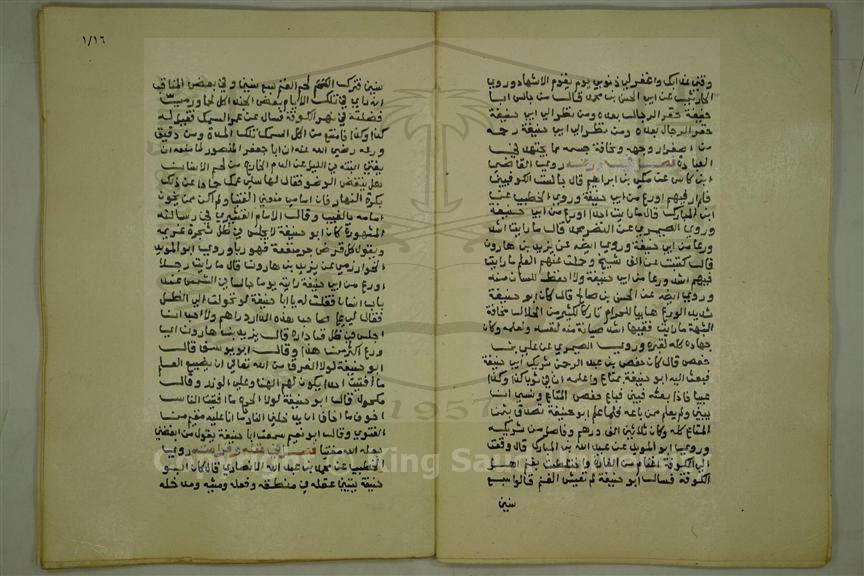 وقني عذابك واغفر لي ذنوبي يوم يقوم الاشهاد وروي
الحارثي عن ابي الحسن بن محمد قال من جالس ابا
حنيفة حقر الرجال بعده ومن نظر الى ابي حنيفة
حقر الرجال بعده ومن نظر الى ابي حنيفة رحمه
من اصفرار وجهه ونحافة جسمه مما يجتهد في
العبادة فصل في ورعه روي القاضي
ابن كاس عن مكي بن ابراهيم قال جالست الكوفيين
فلم ار فيهم اورع من ابي حنيفة وروي الخطيب عن
ابن المبارك قال ما رايت احدا اورع من ابي حنيفة
وروي الصيمري عن النضر بن محمد قال ما رايت اشد
ورعا من ابي حنيفة وروي ايضه عن يزيد بن هارون
قال كتبت عن الف شيخ وحملت عنهم العلم ما رايت
فيهم اشد ورعا من ابي حنيفة ولا احفظ للسان منه
وروي ايضه عن الحسن بن صالح قال كان ابو حنيفة
شديد الورع هايبا للحرام تاركا لكثير من الحلال مخافة
الشبهة ما رايت فقيها اشد صيانة منه لنفسه ولعلمه وكان
جهاده كله لقبره وروي الصيمري عن علي بن
حفص قال كان حفص بن عبد الرحمن شريك ابي حنيفة
فبعث اليه ابو حنيفة بمتاع واعلمه ان في ثوب كذا وكذا
عيبا فاذا بعته فبين فباع حفص المتاع ونسي ان
يبين ولم يعلم ممن باعه فلما علم ابو حنيفة تصدق بثمن
المتاع كله وكان ثلاثين الف درهم وفاصل من شريكه
وروي ابو المويد عن عبد الله بن المبارك قال وقعت
الى الكوفة اغنام من الغارة واختلطت بغنم اهل
الكوفة فسال ابو حنيفة كم تعيش الغنم قالوا سبع
سنين
١/١٦
سنين فترك اكل لحم الغنم سبع سنين وفي بعض المناقب
انه راي في تلك الايام بعض الجند اكل لحما ورمي
فضلته في نهر الكوفة فسال عن عمر السمك فقيل له
كذا وكذا فامتنع من اكل السمك تلك المدة ومن دقيق
ورعه رضي الله عنه ان ابا جعفر المنصور لما منعه ان
يفتي ابنته في الليل عن الدم الخارج من لحم الاسنان
هل ينقض الوضو فقال لها سلي عمك حمادا عن ذلك
بكرة النهار فان امامي منعني الفتيا ولم اكن ممن يخون
امامه بالغيب وقال الامام القشيري في رسالته
المشهورة كان ابو حنيفة لا يجلس في ظل شجرة غريمه
ويقول كل قرض جر منفعة فهو ربا وروي ابو المويد
الخوارزمي عن يزيد بن هارون قال ما رايت رجلا
اورع من ابي حنيفة رايته يوما جالسا في الشمس عند
باب انسان فقلت له يا ابا حنيفة لو تحولت الى الظل
فقال لي على صاحب هذه الدار دراهم ولا احب ان
اجلس في ظل فنا داره قال يزيد بن هارون اي
ورع اكثر من هذا وقال ابو يوسف قال
ابو حنيفة لولا الفرق من الله تعالى ان يضيع العلم
ما افتيت احدا يكون لهم الهنا وعلي الوزر وقال
مكحول قال ابو حنيفة لولا الحرج ما افتيت الناس
اخوف ما اخاف ان يدخلني النار ما انا عليه مقيم من
الفتوي وقال ابو نعيم سمعت ابا حنيفة يقول من ابغضني
جعله الله مفتيا فصل في عقله وفراسته روي
الخطيب عن محمد بن عبد الله الانصاري قال كان ابو
حنيفة يتبين عقله في منطقه وفعله ومشيه ومدخله